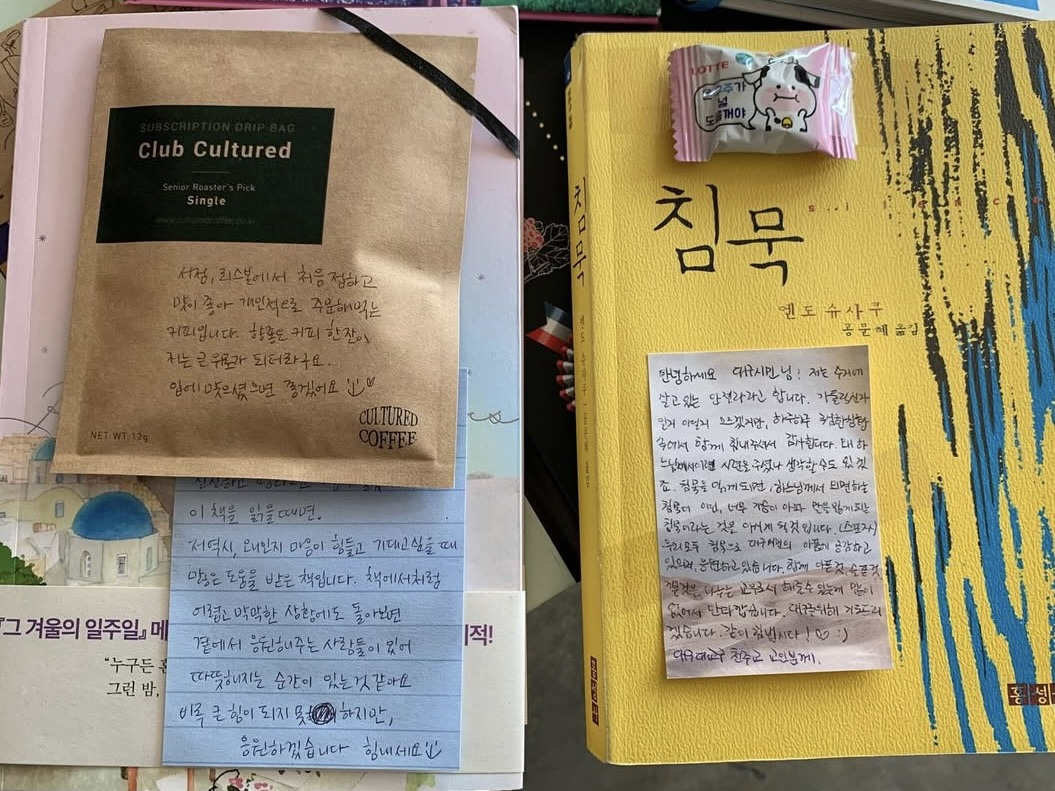 SUBSCRIPTION DRIP BAG
Club Cultured
Senior Roaster's Pick
Single
www.culturedcoffee.co.kr
서점, 리스본에서 처음 접하고
많이 좋아 개인적으로 주문해먹는
커피입니다. 향좋은 커피 한잔이
저는 큰 위로가 되더라구요.
입에 맞으셨으면 좋겠어요
CULTURED
COFFEE
NET WT 12g
이 책을 읽을때면.
저역시, 왜인지 마음이 힘들고 기대고싶을 때
많은 도움을 받은 책입니다. 책에서처럼
어렵고 막막한 상황에도 돌아보면
곁에서 응원해주는 사람들이 있어
따뜻해지는 순간이 있는것 같아요
비록 큰 힘이 되지 못하지만,
응원하겠습니다 힘내세요
『그 겨울의 일주일』 메
적!
"누구든 혼
그런 밤,
LOTTE
침묵
엔도 슈사쿠
공문혜 옮김
침묵
엔도 슈사쿠
공문혜 옮김
안녕하세요 대구시민 님! 저는 수지에
살고 있는 안젤라라고 합니다. 가톨릭신자
인지 아닐지 모르겠지만, 하루하루 걱정한상황
속에서 함께 힘내주셔서 감사합니다. 왜 하
느님께서 이런 시련을 주셨나 생각할 수도 있겠
죠. 침묵을 읽게 되면, 하느님께서 외면하는
침묵이 아닌, 너무 가슴이 아파 말을 잃게되는
침묵이라는 것을 아시게 될 것입니다. (스포자)
우리모두 침묵으로 대구시민의 아픔에 공감하고
있으며, 응원하고 있습니다. 함께 아픈것, 슬픈것
없어서 안타깝습니다. 대구를위해 기도드리
겠습니다. 같이 힘냅시다! ♡ :)
대구대교구 천주교 교인분께.
홍성